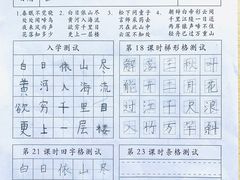 1. 春眠不觉晓 2. 白日依山尽 3. 松下问童子 4. 朝辞白帝彩云间
处处闻啼鸟 黄河入海流 言师采药去 千里江陵一日还
夜来风雨声 欲穷千里目 只在此山中 两岸猿声啼不住
花落知多少 更上一层楼 云深不知处 轻舟已过万重山
入学测试 第18课时梯形格测试
白日依山尽 解落三秋叶
黄河入海流 能开二月花
欲穷千里目 过江千尺浪
更上一层楼 入竹万竿斜
第21课时田字格测试 第23课时条格测试
白日依山尽